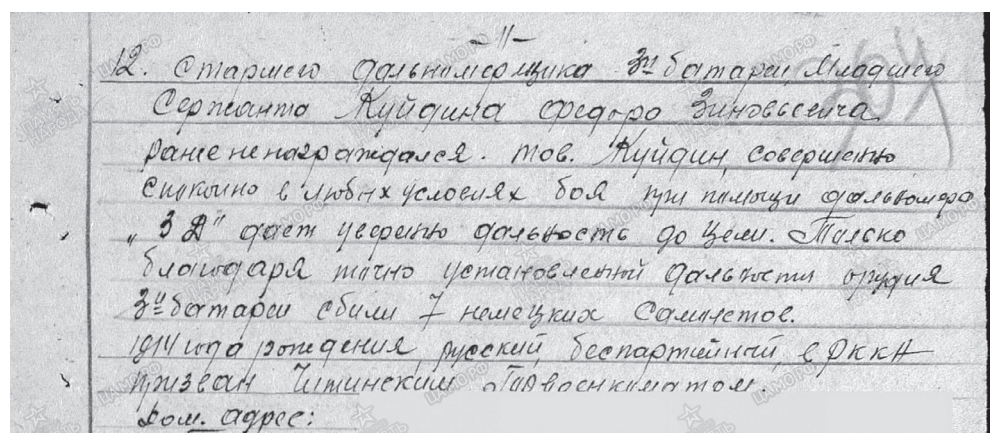 -11-
12. Старшего дальномерщика 3й батареи Младшего
Сержанта Куйдина Федора Зиновьевича
ранее не награждался. тов. Куйдин, совершенно
спокойно в любых условиях боя при помощи дальномера
"ЗД" дает уверенно дальность до цели. Только
благодаря точно установленной дальности орудия
3й батареи сбили 7 немецких Самолетов.
1914 года рождения, русский, беспартийный, в РККА
призван Читинским военкоматом.
Дом. адрес: